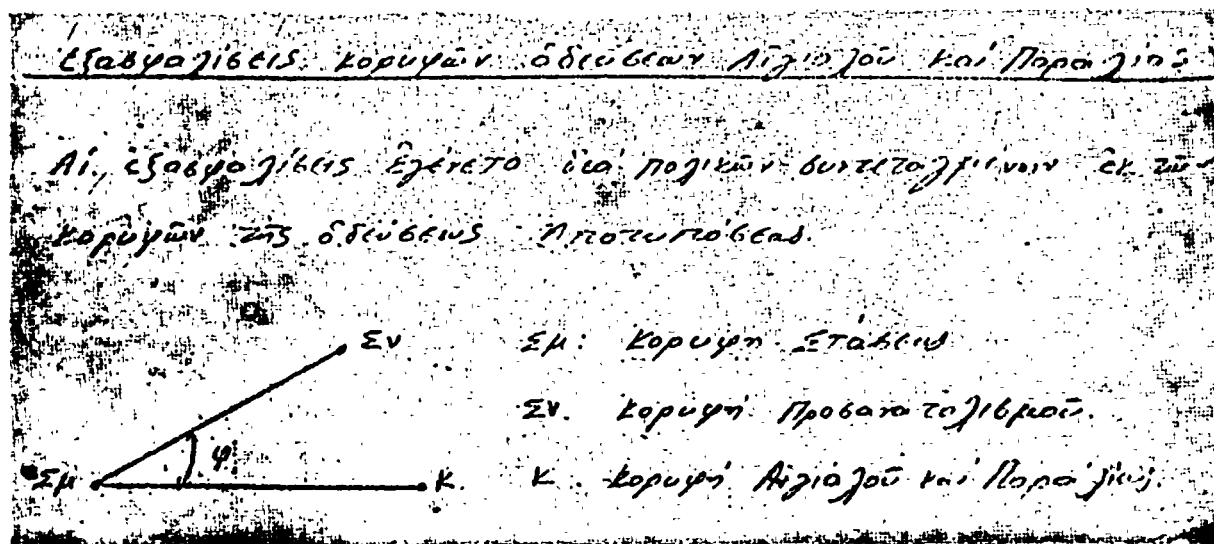 Ἐξασφαλίσεις κορυφῶν ὁδεύσεων Αἰγιαλοῦ καί Παραλίας
Αἱ ἐξασφαλίσεις ἐγένετο διά πολικῶν συντεταγμένων ἐκ τῶν
κορυφῶν τῆς ὁδεύσεως Ἀποτυπόσεως.
Σν Σμ: Κορυφή Στάσεως
Σν. Κορυφή Προσανατολισμοῦ.
φ
Σμ Κ. Κ. Κορυφή Αἰγιαλοῦ καί Παραλίας.